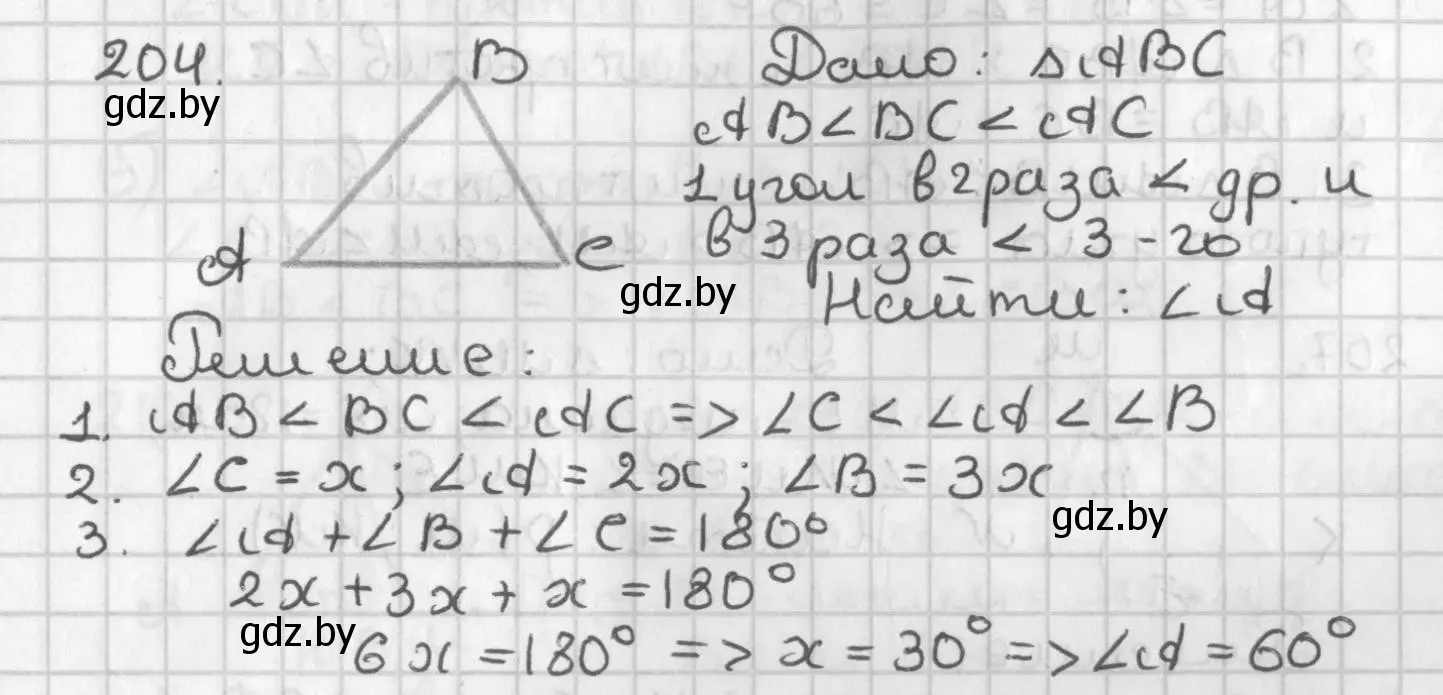 204.
B
Дано: △ABC
gdz.by
AB < BC < AC
1 угол в 2 раза < др. и
в 3 раза < 3-го
A
C
gdz.by
Найти: ∠A
Решение:
1. AB < BC < AC => ∠C < ∠A < ∠B
2. ∠C = x; ∠A = 2x; ∠B = 3x
gdz.by
3. ∠A + ∠B + ∠C = 180°
2x + 3x + x = 180°
gdz.by
6x = 180° => x = 30° => ∠A = 60°